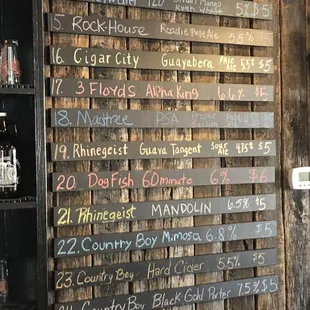 120 5% $5
15 Rock-House Roadie Pale Ale 5.5% $5
16 Cigar City Guayabera Pale Ale 5.5% $5
17 3 Floyds Alpha King 6.6% $5
18 Madtree PSA Pale Ale $5
19 Rhinegeist Guava Tangent Sour Ale 4.5% $5
20 DogFish 60minute 6% $6
21 Rhinegeist Mandolin 6.5% $5
22 Country Boy Mimosa 6.8% $5
23 Country Boy Hard Cider 5.5% $5
24 Country Boy Black Gold Porter 7.5% $5